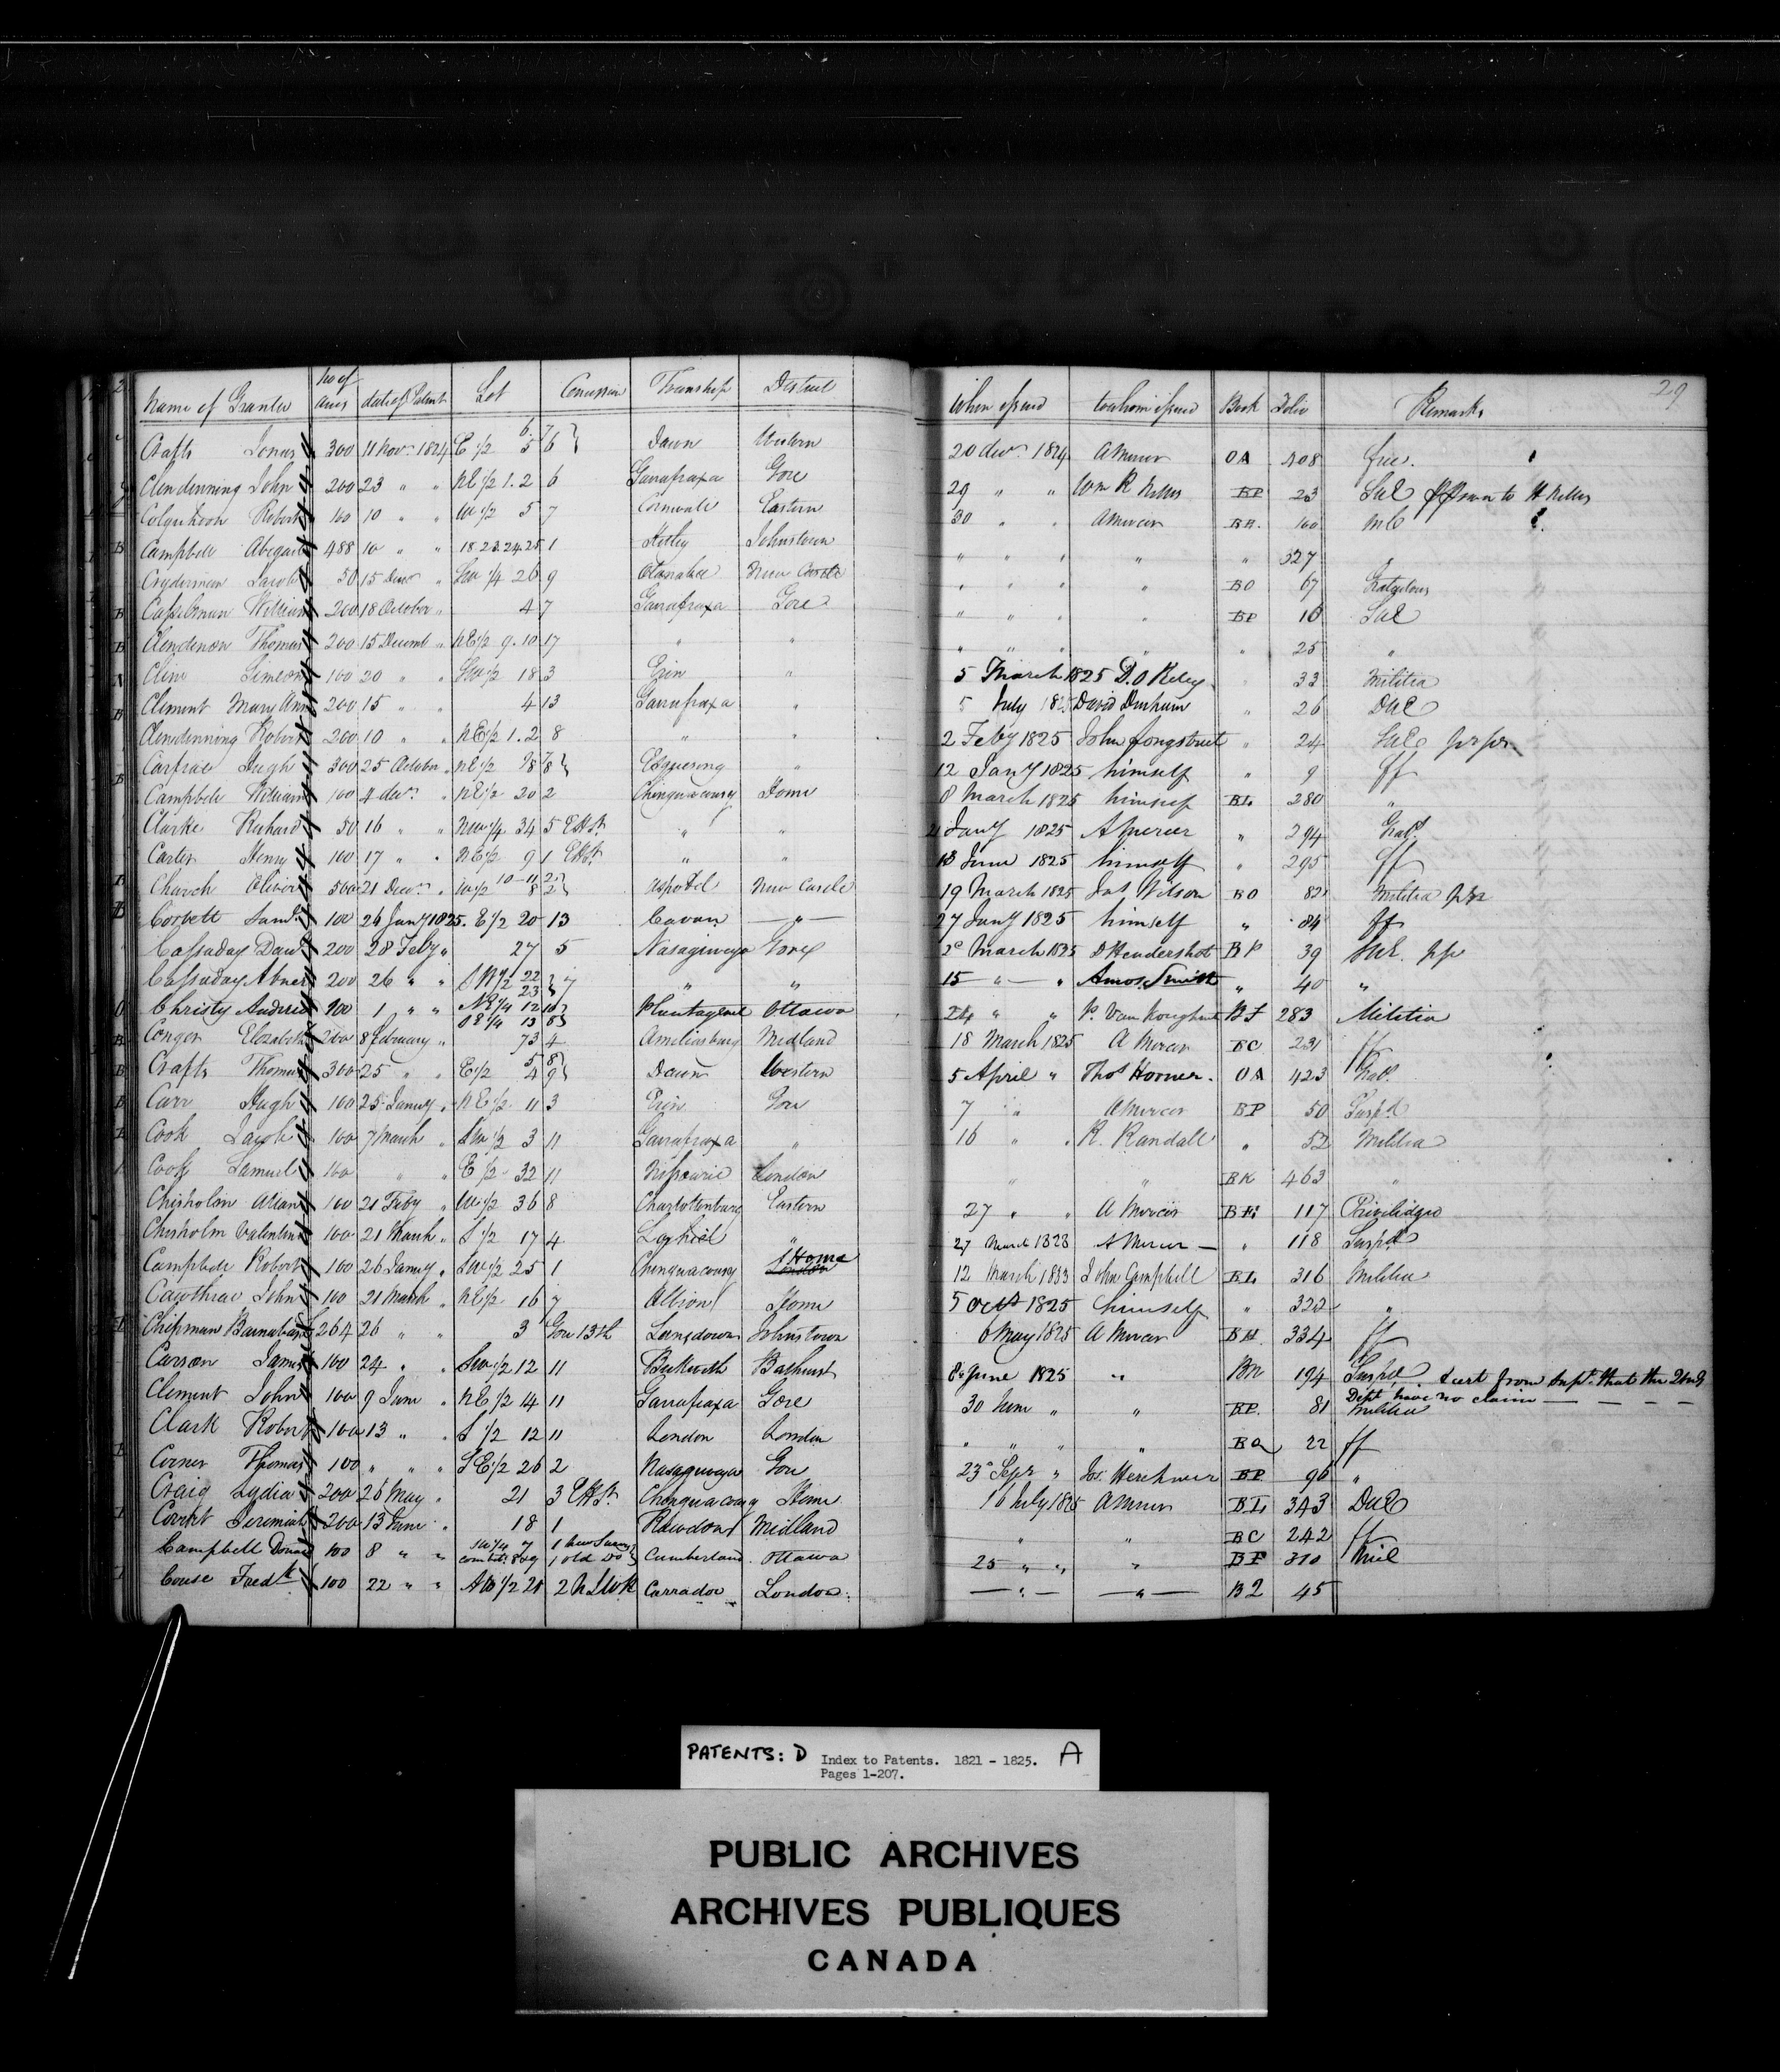 29
Name of Grantee No of acres date of Patent Lot Concession Township District When issued to whom issued Book Folio Remarks
Crafts Jonas 300 11 Novr 1824 E 1/2 6 5 7 6 Dawn Western 20 decr 1824 A Mercer OA 408 free.
Clendinning John 200 23 " " NE 1/2 1.2 6 Garrafraxa Gore 29 " " Wm R BP 23 to H
Colquhoon Robert 100 10 " " W 1/2 5 7 Cornwall Eastern 30 " " A Mercer 100 MC
Campbell Abigail 488 10 " " 18 23.24.25 1 Kitley Johnstown " " " " " 327 "
Cryderman Jacob 50 15 Decr " SW 1/4 26 9 Otanabee New Castle " " " " BO 67
Casselman William 200 18 October " 4 7 Garrafraxa Gore " " " " BP 10
Clendenon Thomas 200 15 Decemb " NE 1/2 9.10 17 " " " " " " " 25 "
Cline Simeon 100 20 " " SW 1/2 18 3 Erin " 5 March 1825 D. O 33 Militia
Clement Mary Ann 200 15 " " 4 13 Garrafraxa " 5 July 1825 David Durham " 26 UE
Clendinning Robert 200 10 " " NE 1/2 1.2 8 " " 2 Feby 1825 John Longstreet " 24
Carfrae Hugh 300 25 October " NE 1/2 8 Esquesing " 12 Jany 1825 himself " 9 ff
Campbell William 100 4 decr " NE 1/2 30 2 Chinguacousy Home 8 March 1825 himself BL 280 "
Clarke Richard 50 16 " " NW 1/4 34 5 EHSt " " Jany 1825 A Mercer " 294
Carter Henry 100 17 " " NE 1/2 9 1 EHSt " " 18 June 1825 himself " 295 ff
Church Oliver 500 21 Decr " W 1/2 10-11 8 2 2 Asphodel New Castle 19 March 1825 Jas Wilson BO 82 Militia
Corbett Saml 100 24 Jany 1825. E 1/2 20 13 Cavan — " — 27 Jany 1825 himself " 84 ff
Cassaday Danl 200 28 Feby " 27 5 Nasagiweya Gore March 1825 D Hendershot BP 39
Cassaday Abner 200 26 " " SW 1/2 22 23 7 " " 15 — " — " Amos Smith " 40 "
Christy Andrew 100 1 " " NE 1/4 12 SE 1/4 13 Plantagenet Ottawa 24 " " P. Van Koughnet BF 283 Militia
Conger Elizabeth 200 8 February " 73 4 Ameliasburg Midland 18 March 1825 A Mercer BC 231 ff
Crafts Thomas 300 25 " " E 1/2 5 4 8 9 Dawn Western 5 April " Thos Horner. OA 423
Carr Hugh 100 25 January " NE 1/2 11 3 Erin Gore 7 " A Mercer BP 50 Suspd
Cook Jacob 100 7 March " SW 1/2 3 11 Garrafraxa " 16 " " R. Randall " 52 Militia
Cook Samuel 100 " " E 1/2 32 11 Nissourie London " " BK 463 "
Chisholm Allan 100 21 Feby " W 1/2 36 8 Charlottenburg Eastern 27 " " A Mercer 117 Priviledged
Chisholm Valentine 100 21 March " S 1/2 17 4 Lochiel " 27 March 1828 A Mercer — " 118 Suspd
Campbell Robert 100 26 January " SW 1/2 25 1 Chinguacousy London Home 12 March 1833 John Campbell BL 316 Militia
Cawthrae John 100 21 March " NE 1/2 16 7 Albion Home 5 Octr 1825 himself " 322 "
Chipman Barnabas 264 26 " " 3 Gore 13th Lansdown Johnstown 6 May 1825 A Mercer BH. 334 ff
Carson James 100 24 " " SW 1/2 12 11 Beckwith Bathurst 8 June 1825 " BM 194 Suspd cert from Supt that the
Dept have no claim — — — —
Clement John 100 9 June " NE 1/2 14 11 Garrafraxa Gore 30 June " " BP. 81 Militia
Clark Robert 100 13 " " S 1/2 12 11 London London " " " " BQ 22 ff
Corner Thomas 100 " " " SE 1/2 26 2 Nasagiweya Gore 23 Sepr " BP 96 "
Craig Lydia 200 26 May " 21 3 EHSt Chinguacousy Home 16 July 1825 A Mercer BL 343 UE
Covert Jeremiah 200 13 June " 18 1 Rawdon Midland " " BC 242 ff
Campbell Donald 100 8 " " 7 8 & 9 1 New Survey 1 old Do Cumberland Ottawa 25 " " " BF 310 Mil
Couse Fredk 100 22 " " 1/2 21 2 Carradoc London — " — — " — B2 45
PATENTS: D Index to Patents. 1821 - 1825. A
Pages 1-207.
PUBLIC ARCHIVES
ARCHIVES PUBLIQUES
CANADA